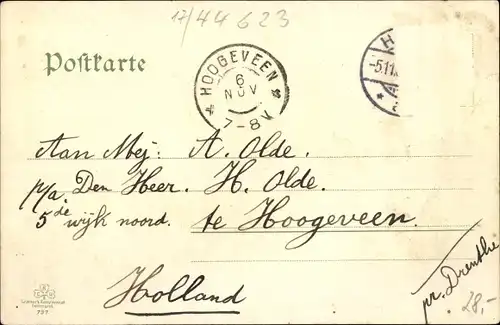 17/44623
Postkarte
HOOGEVEEN
6
NOV
7-8V
H
-5.11.
Aan Mej: A. Olde.
p/a. Den Heer. H. Olde.
5de wijk noord. te Hoogeveen.
Holland
pr. Drenthe
28,-
737